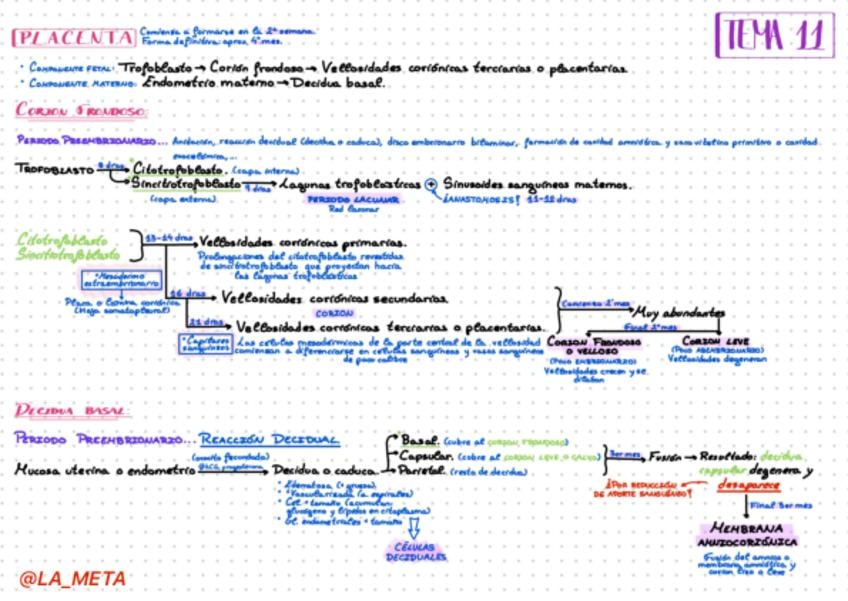 PLACENTA
Comienza a formarse en la 2ª semana.
Forma definitiva: aprox. 4º mes.
TEMA 11
· COMPONENTE FETAL: Trofoblasto → Corión frondoso → Vellosidades coriónicas terciarias o placentarias.
· COMPONENTE MATERNO: Endometrio materno → Decidua basal.
CORION FRONDOSO:
PERIODO PREEMBRIONARIO... Anidación, reacción decidual (decidua o caduca), disco embrionario bilaminar, formación de cavidad amniótica y saco vitelino primitivo o cavidad
exocelómica,...
TROFOBLASTO 8 días Citotrofoblasto. (capa interna)
Sincitiotrofoblasto 9 días Lagunas trofoblásticas + Sinusoides sanguíneos maternos.
(capa externa) PERIODO LACUNAR ¡ANASTOMOSIS! 11-12 días
Red lacunar
Citotrofoblasto
Sincitiotrofoblasto
13-14 días Vellosidades coriónicas primarias.
Prolongaciones del citotrofoblasto revestidas
de sincitiotrofoblasto que proyectan hacia
las lagunas trofoblásticas
*Mesodermo
extraembrionario
Placa o lámina coriónica
(Hoja somatopleural)
16 días Vellosidades coriónicas secundarias.
CORION
21 días Vellosidades coriónicas terciarias o placentarias.
*Capilares
sanguíneos
Las células mesodérmicas de la parte central de la vellosidad
comienzan a diferenciarse en células sanguíneas y vasos sanguíneos
de poco calibre
Comienzo 2º mes Muy abundantes
Final 2º mes
CORION FRONDOSO
O VELLOSO
(POLO EMBRIONARIO)
Vellosidades crecen y se
dilatan
CORION LEVE
(POLO ABEMBRIONARIO)
Vellosidades degeneran
DECIDUA BASAL:
PERIODO PREEMBRIONARIO... REACCIÓN DECIDUAL
Mucosa uterina o endometrio
(ovocito fecundado)
Decidua o caduca.
Basal. (cubre al CORION FRONDOSO)
Capsular. (cubre al CORION LEVE O CALVO)
Parietal. (resto de decidua)
3er mes Fusión → Resultado: decidua
capsular degenera y
desaparece
¿POR REDUCCIÓN
DE APORTE SANGUÍNEO?
Final 3er mes
MEMBRANA
AMNIOCORIÓNICA
Fusión del amnios o
membrana amniótica y
corion liso o leve
* Edematosa (+ gruesa)
* +Vascularizada (a. espirales)
* Cél. + tamaño (acumulan
glucógeno y lípidos en citoplasma)
* Gl. endometriales + tamaño
CÉLULAS
DECIDUALES
@LA_META